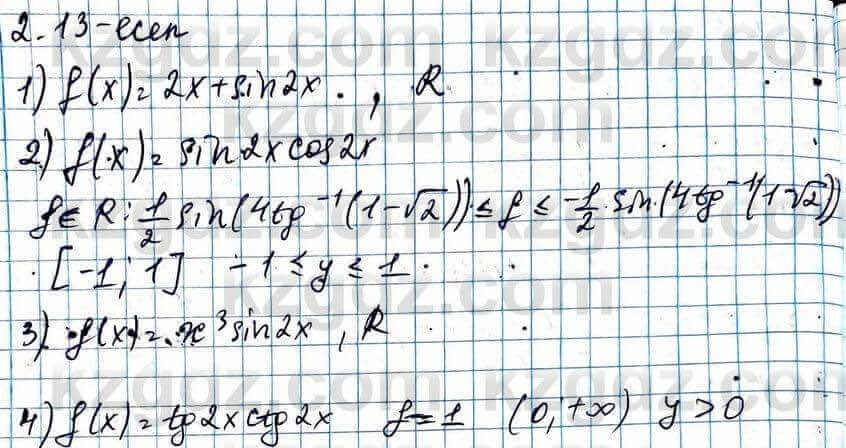 2.13-есеп
1) f(x)=2x+sin2x . , R
2) f(x)=sin2xcos2x
f∈R: 1/2 sin(4tg⁻¹(1-√2)) ≤ f ≤ -1/2 · sin·(4tg⁻¹(1-√2))
[-1; 1] -1 ≤ y ≤ 1.
3) f(x)=x³sin2x , R
4) f(x)=tg2xctg2x f=1 (0; +∞) y>0
kzgdz.com